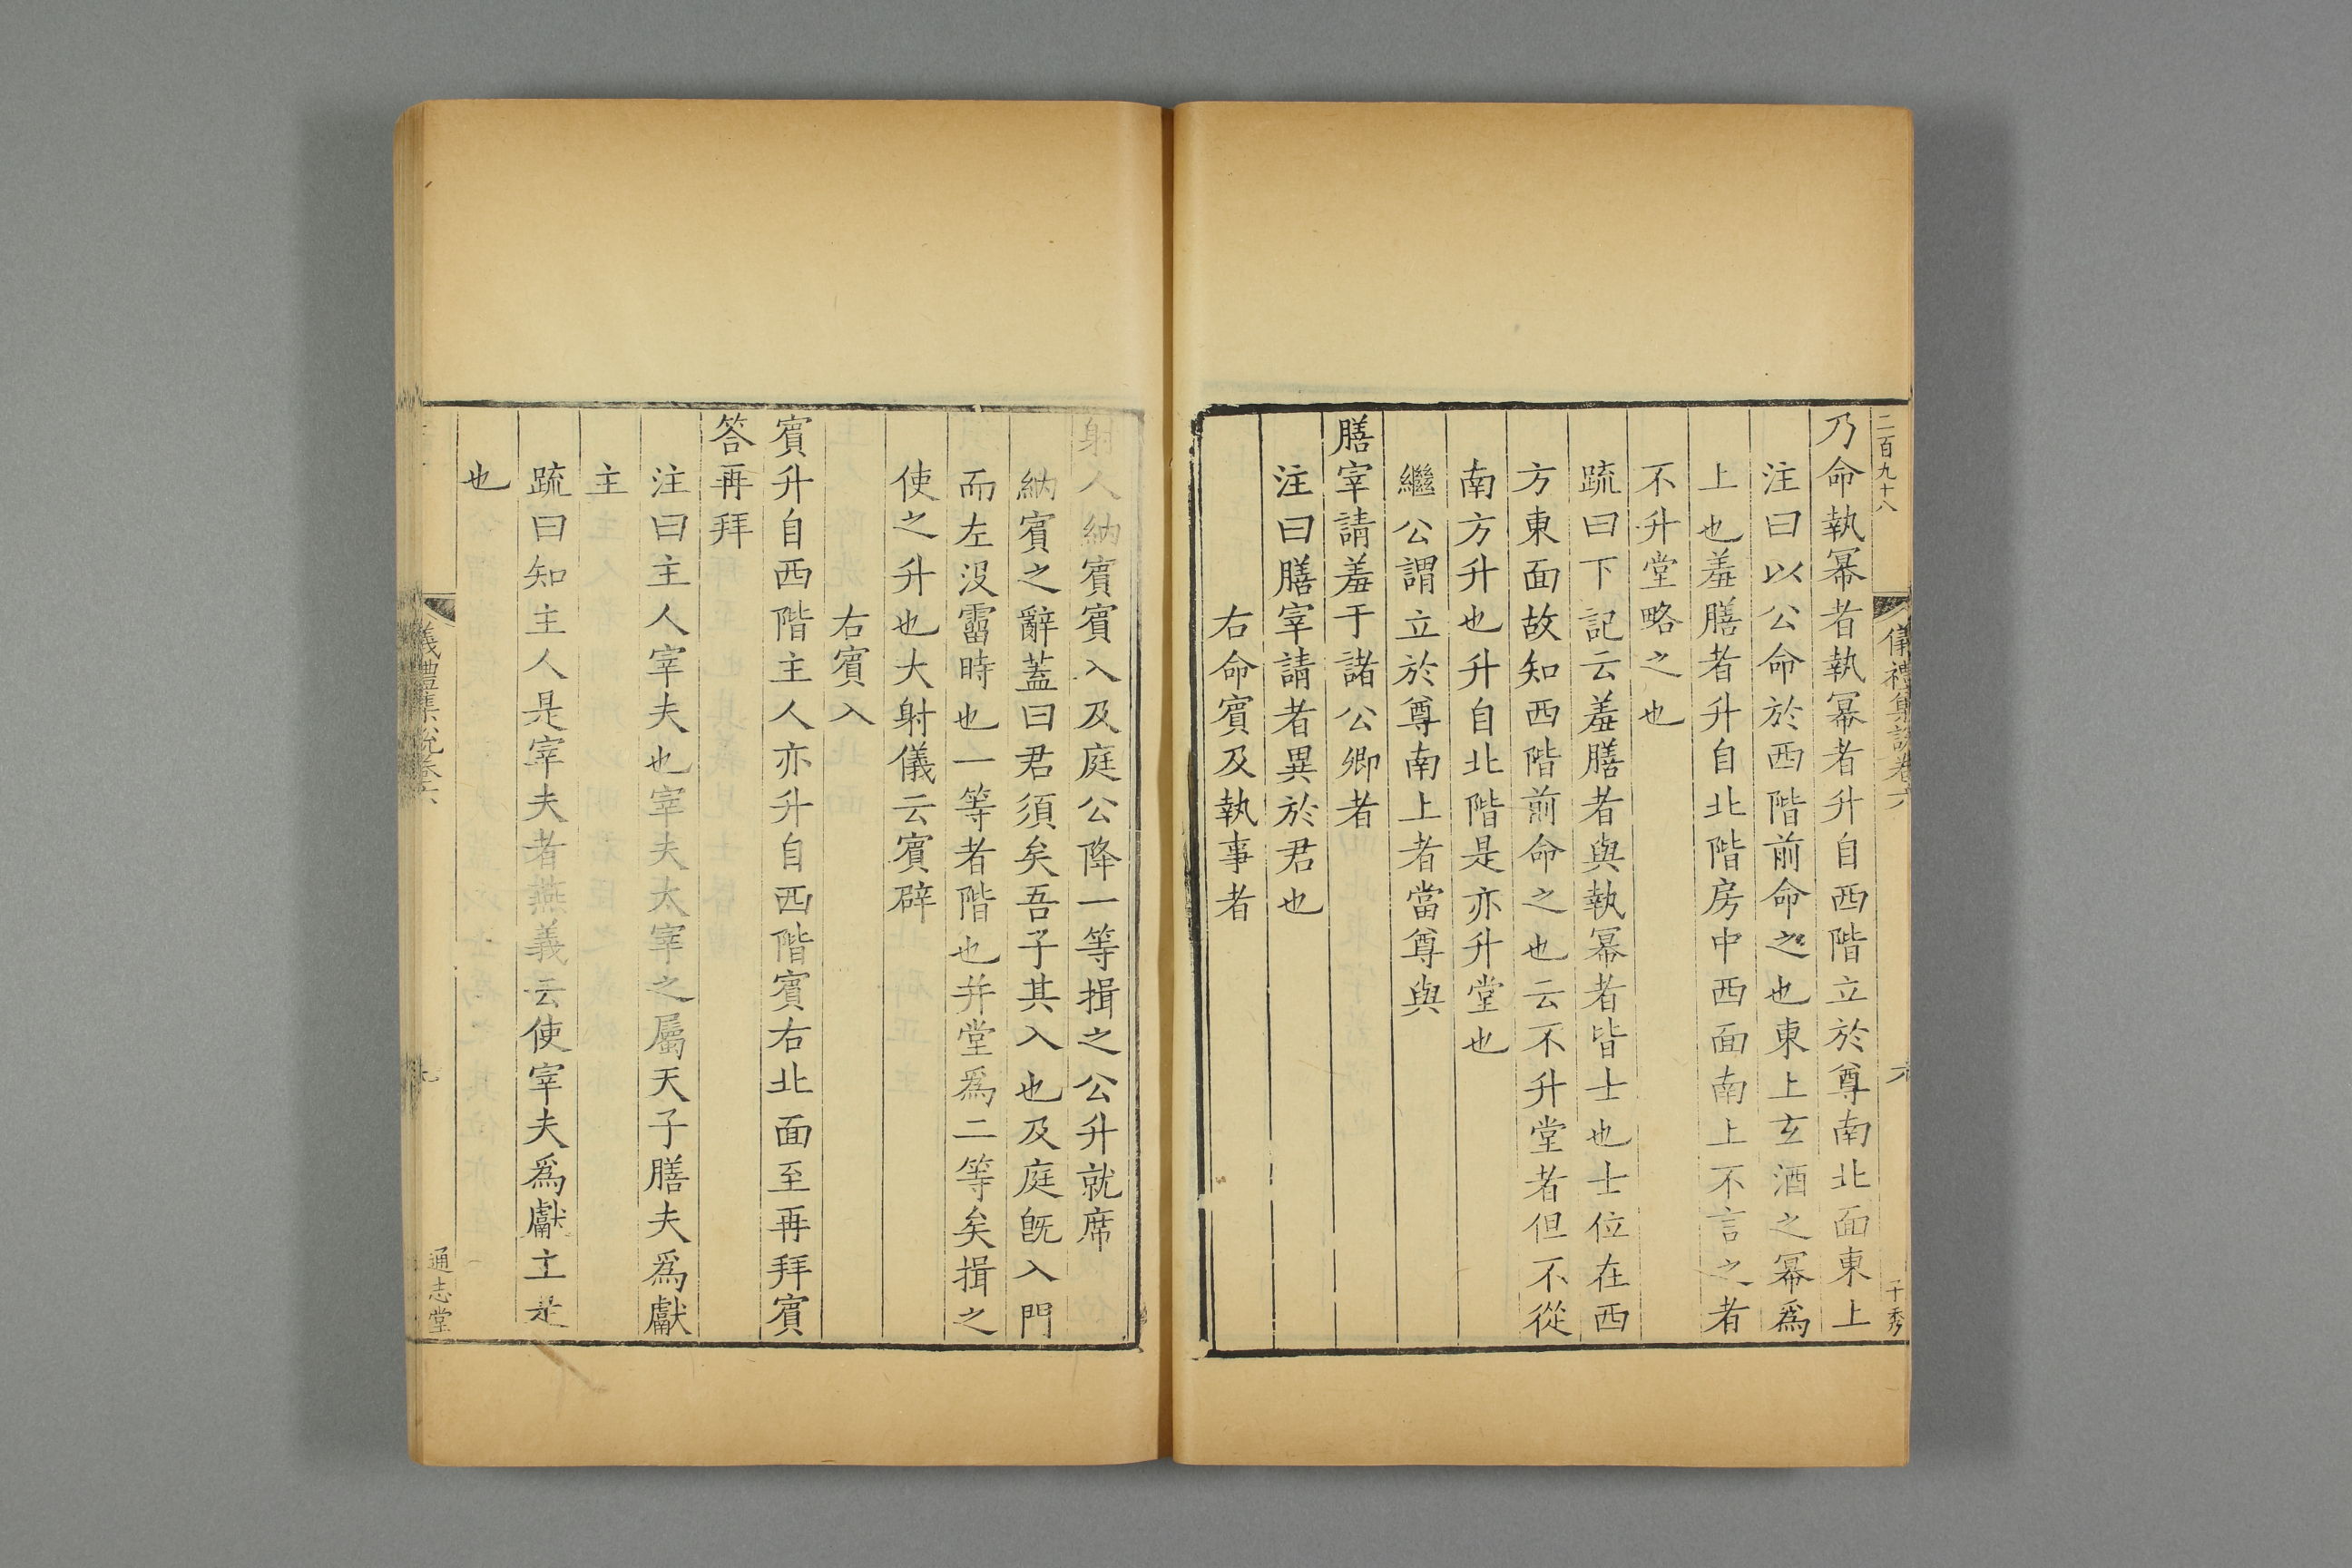 二百九十八
儀禮集說卷六
六
于秀
乃命執冪者執冪者升自西階立於尊南北面東上
注曰以公命於西階前命之也東上玄酒之冪爲
上也羞膳者升自北階房中西面南上不言之者
不升堂略之也
疏曰下記云羞膳者與執冪者皆士也士位在西
方東面故知西階前命之也云不升堂者但不從
南方升也升自北階是亦升堂也
繼公謂立於尊南上者當尊與
膳宰請羞于諸公卿者
注曰膳宰請者異於君也
右命賓及執事者
射人納賓賓入及庭公降一等揖之公升就席
納賓之辭蓋曰君須矣吾子其入也及庭旣入門
而左沒霤時也一等者階也并堂爲二等矣揖之
使之升也大射儀云賓辟
右賓入
賓升自西階主人亦升自西階賓右北面至再拜賓
答再拜
注曰主人宰夫也宰夫大宰之屬天子膳夫爲獻
主
疏曰知主人是宰夫者燕義云使宰夫爲獻主是
也
儀禮集說卷六
九
通志堂